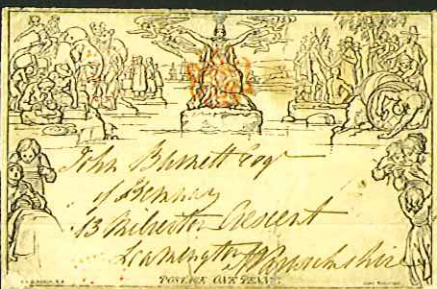 John Barnett Esqr
of
13 Milverton Crescent
Leamington Warwickshire
POSTAGE ONE PENNY